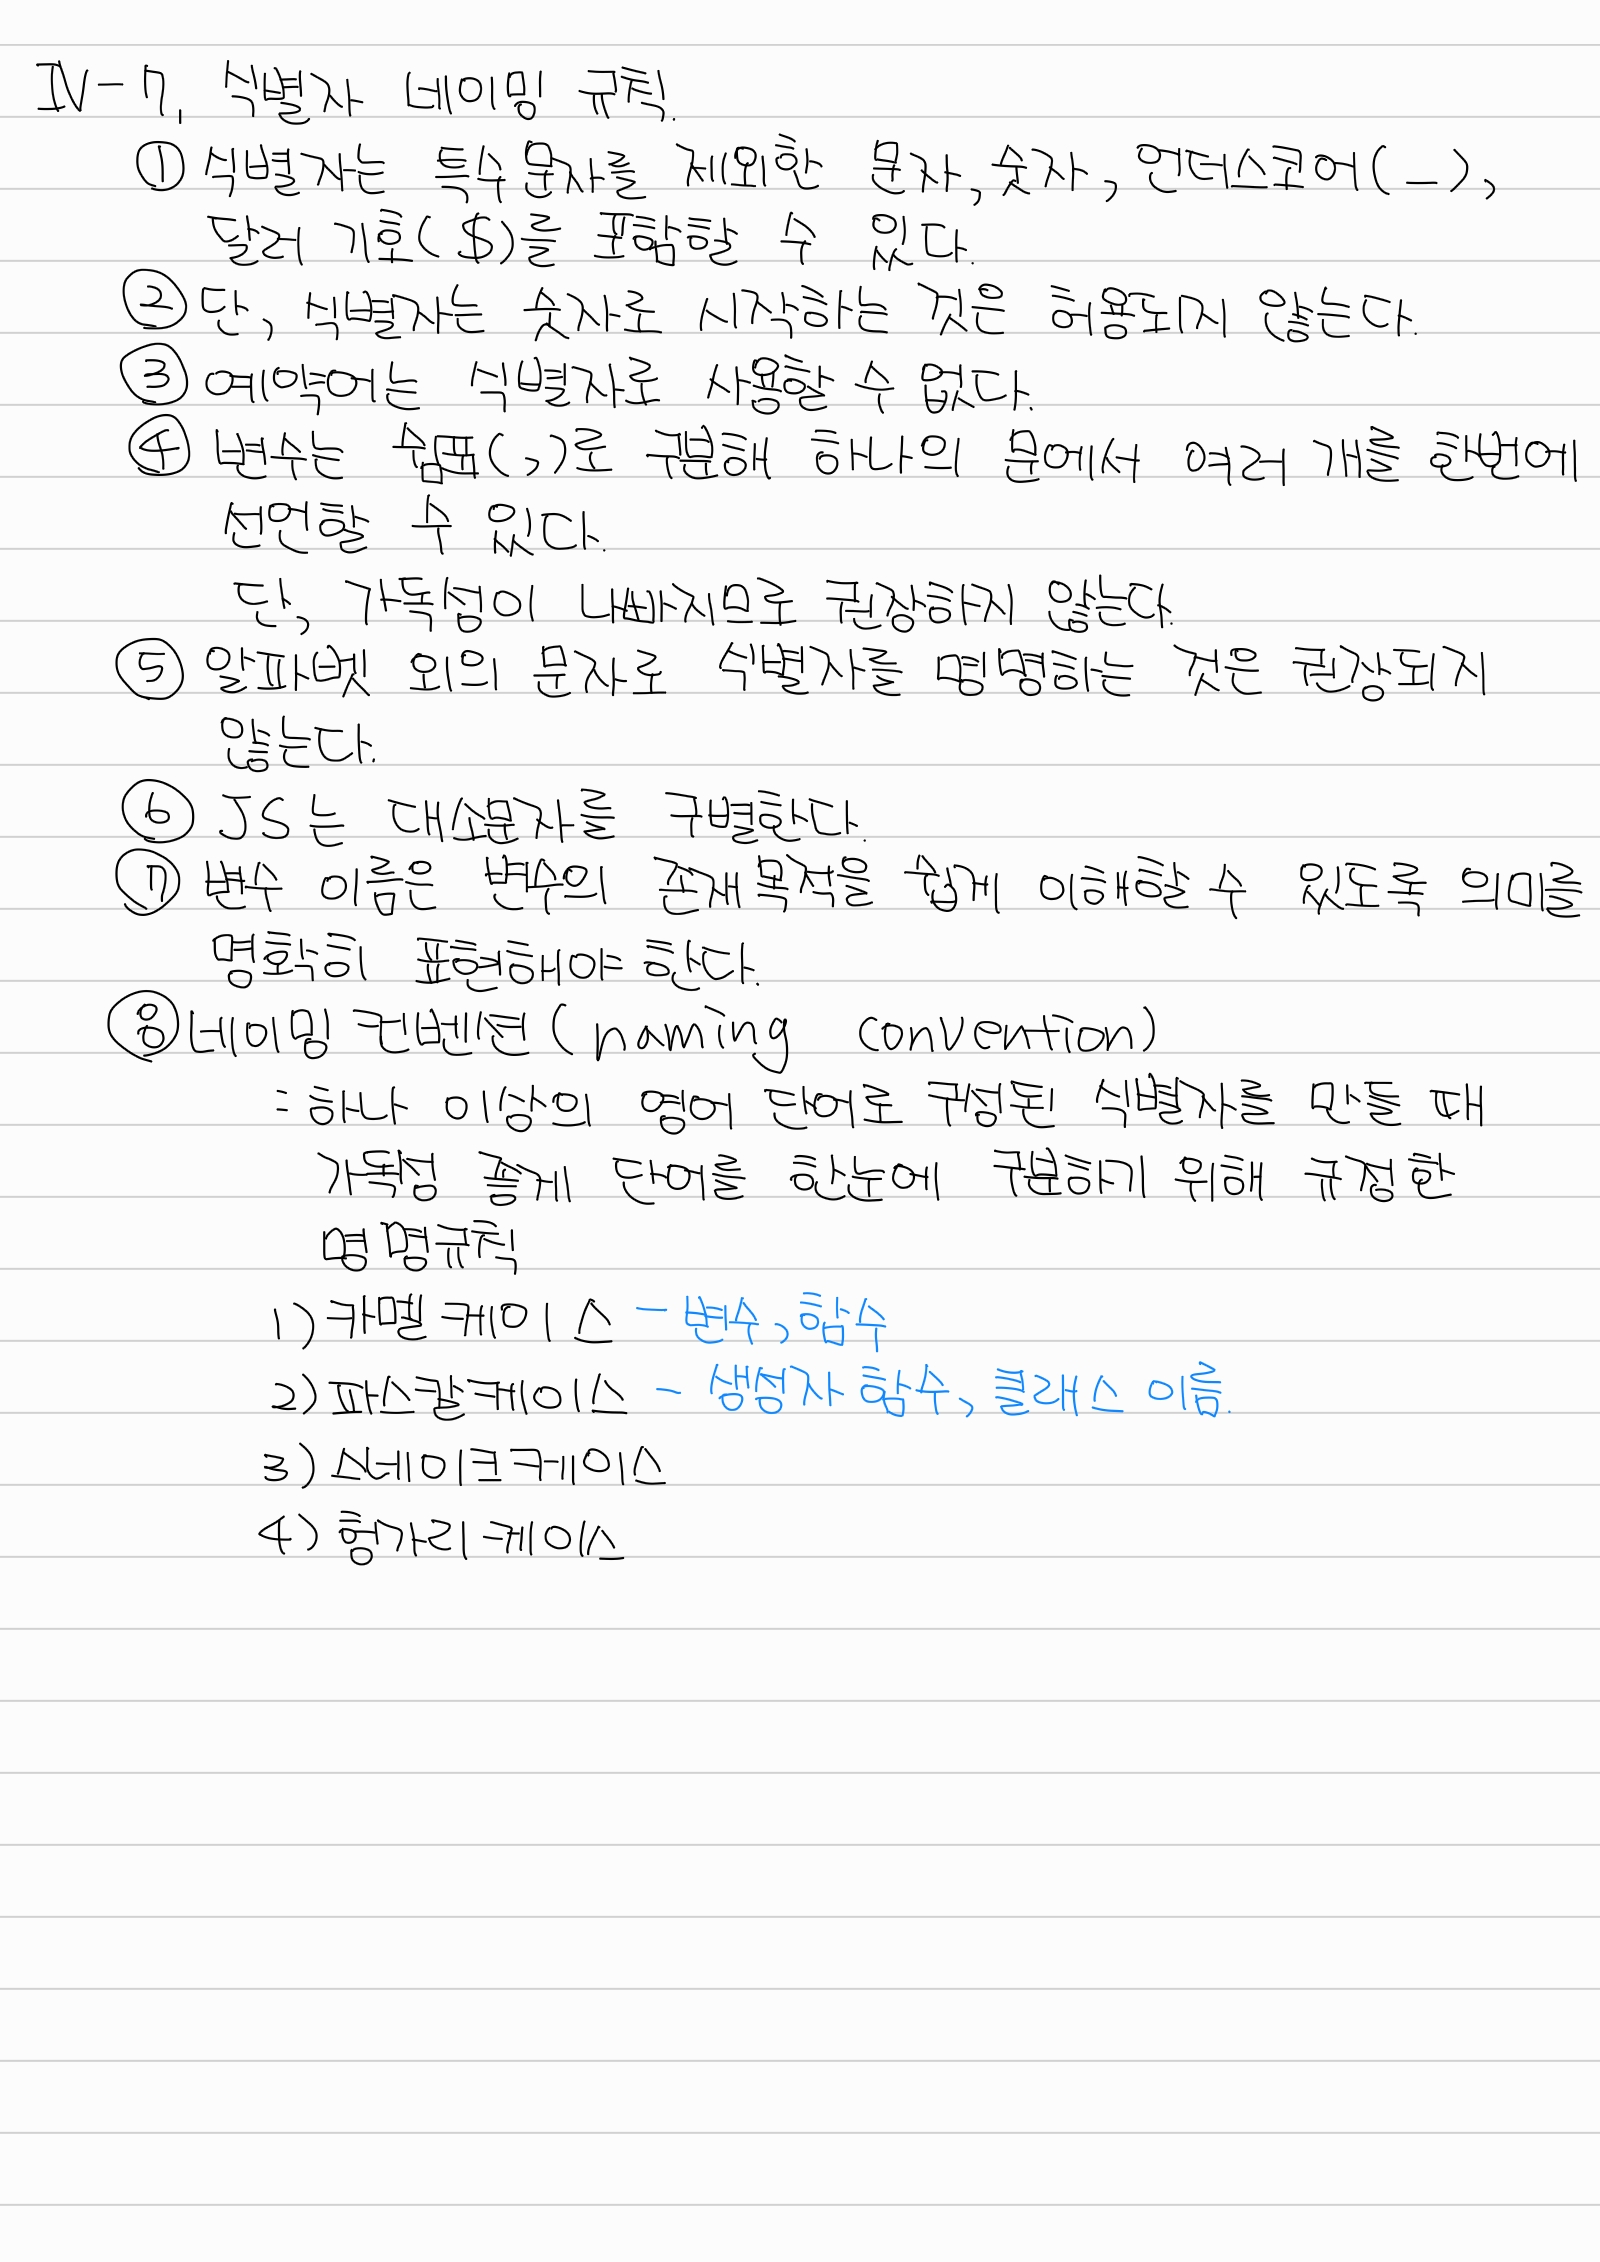 IV-7. 식별자 네이밍 규칙.
① 식별자는 특수문자를 제외한 문자, 숫자, 언더스코어(_),
달러 기호($)를 포함할 수 있다.
② 단, 식별자는 숫자로 시작하는 것은 허용되지 않는다.
③ 예약어는 식별자로 사용할 수 없다.
④ 변수는 쉼표(,)로 구분해 하나의 문에서 여러 개를 한번에
선언할 수 있다.
단, 가독성이 나빠지므로 권장하지 않는다.
⑤ 알파벳 외의 문자로 식별자를 명명하는 것은 권장되지
않는다.
⑥ JS는 대소문자를 구별한다.
⑦ 변수 이름은 변수의 존재 목적을 쉽게 이해할 수 있도록 의미를
명확히 표현해야 한다.
⑧ 네이밍 컨벤션(naming convention)
: 하나 이상의 영어 단어로 구성된 식별자를 만들 때
가독성 좋게 단어를 한눈에 구분하기 위해 규정한
명명규칙
1) 카멜 케이스 - 변수, 함수
2) 파스칼 케이스 - 생성자 함수, 클래스 이름.
3) 스네이크 케이스
4) 헝가리 케이스